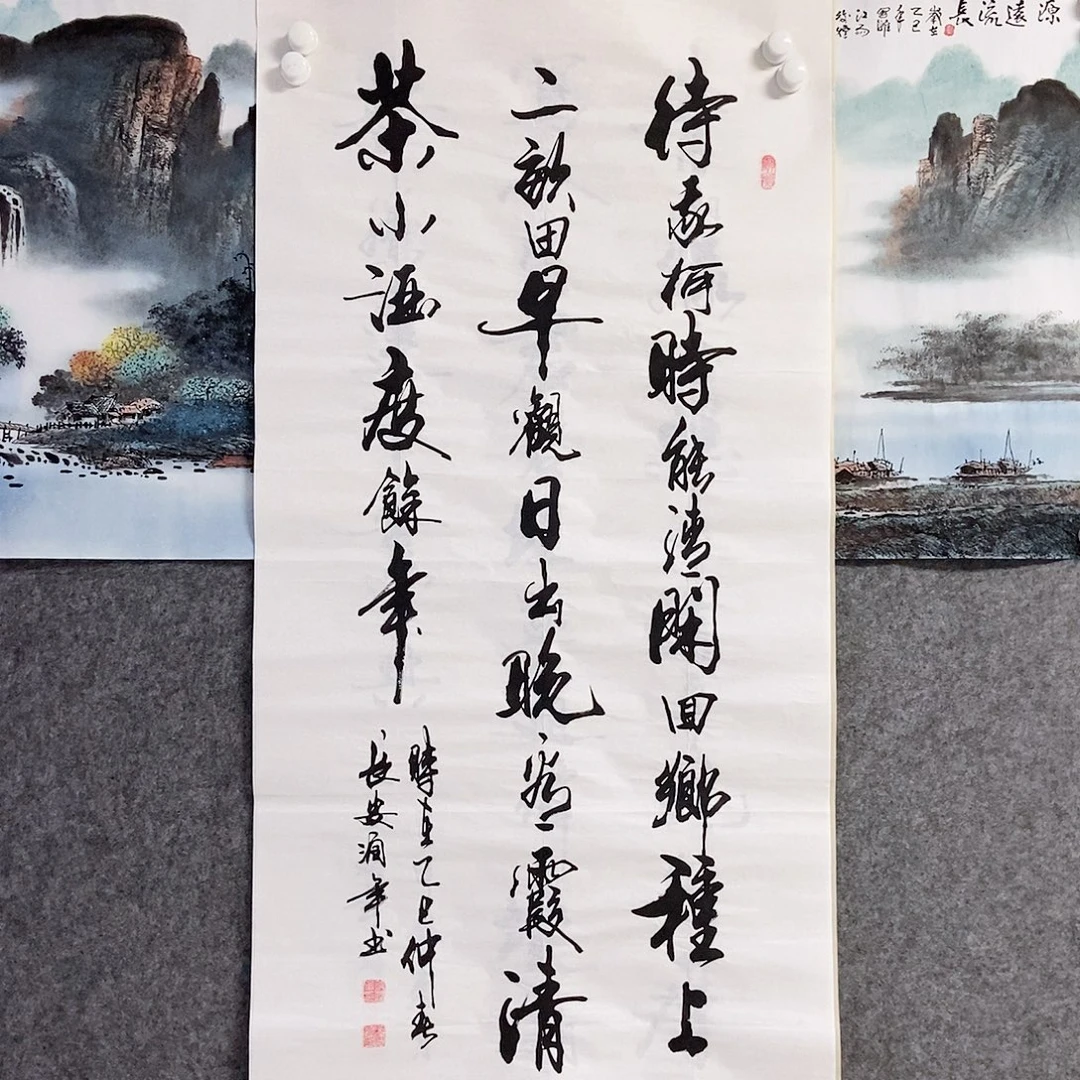 源遠流長
歲在
乙巳
年
待我何時能清閑回鄉種上
二畝田早觀日出晚看霞清
茶小酒度餘年
時在乙巳仲春
長安潤年书